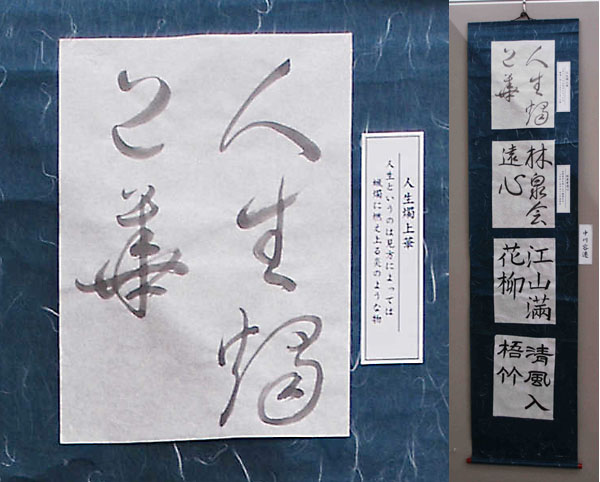 人生燭
上華
人生燭上華
人生というのは見方によっては
蝋燭に燃え上る炎のような物
人生燭
上華
林泉会
遠心
江山満
花柳
清風入
梧竹